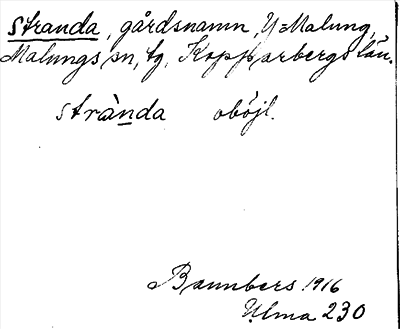 stranda, gårdsnamn, Y=Malung,
Malungs sn, tg, Kopparbergs län.
strànda oböjl.
Bannbers 1916
Ulma 230